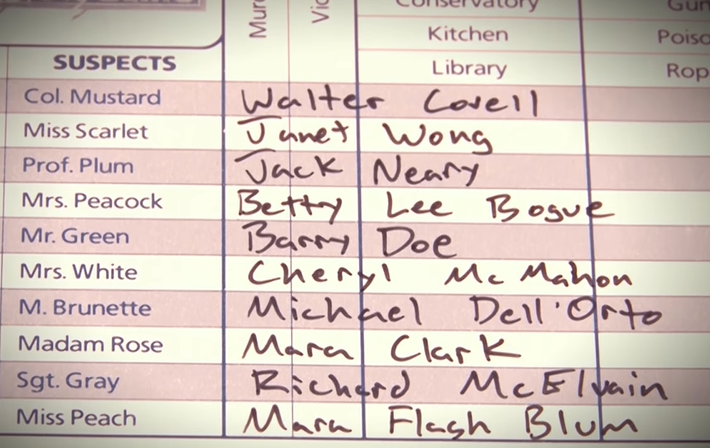 Conservatory
Kitchen
Poiso
SUSPECTS
Library
Rop
Col. Mustard Walter Covell
Miss Scarlet Janet Wong
Prof. Plum Jack Neary
Mrs. Peacock Betty Lee Bogue
Mr. Green Barry Doe
Mrs. White Cheryl McMahon
M. Brunette Michael Dell'Orto
Madam Rose Mara Clark
Sgt. Gray Richard McElvain
Miss Peach Mara Flash Blum